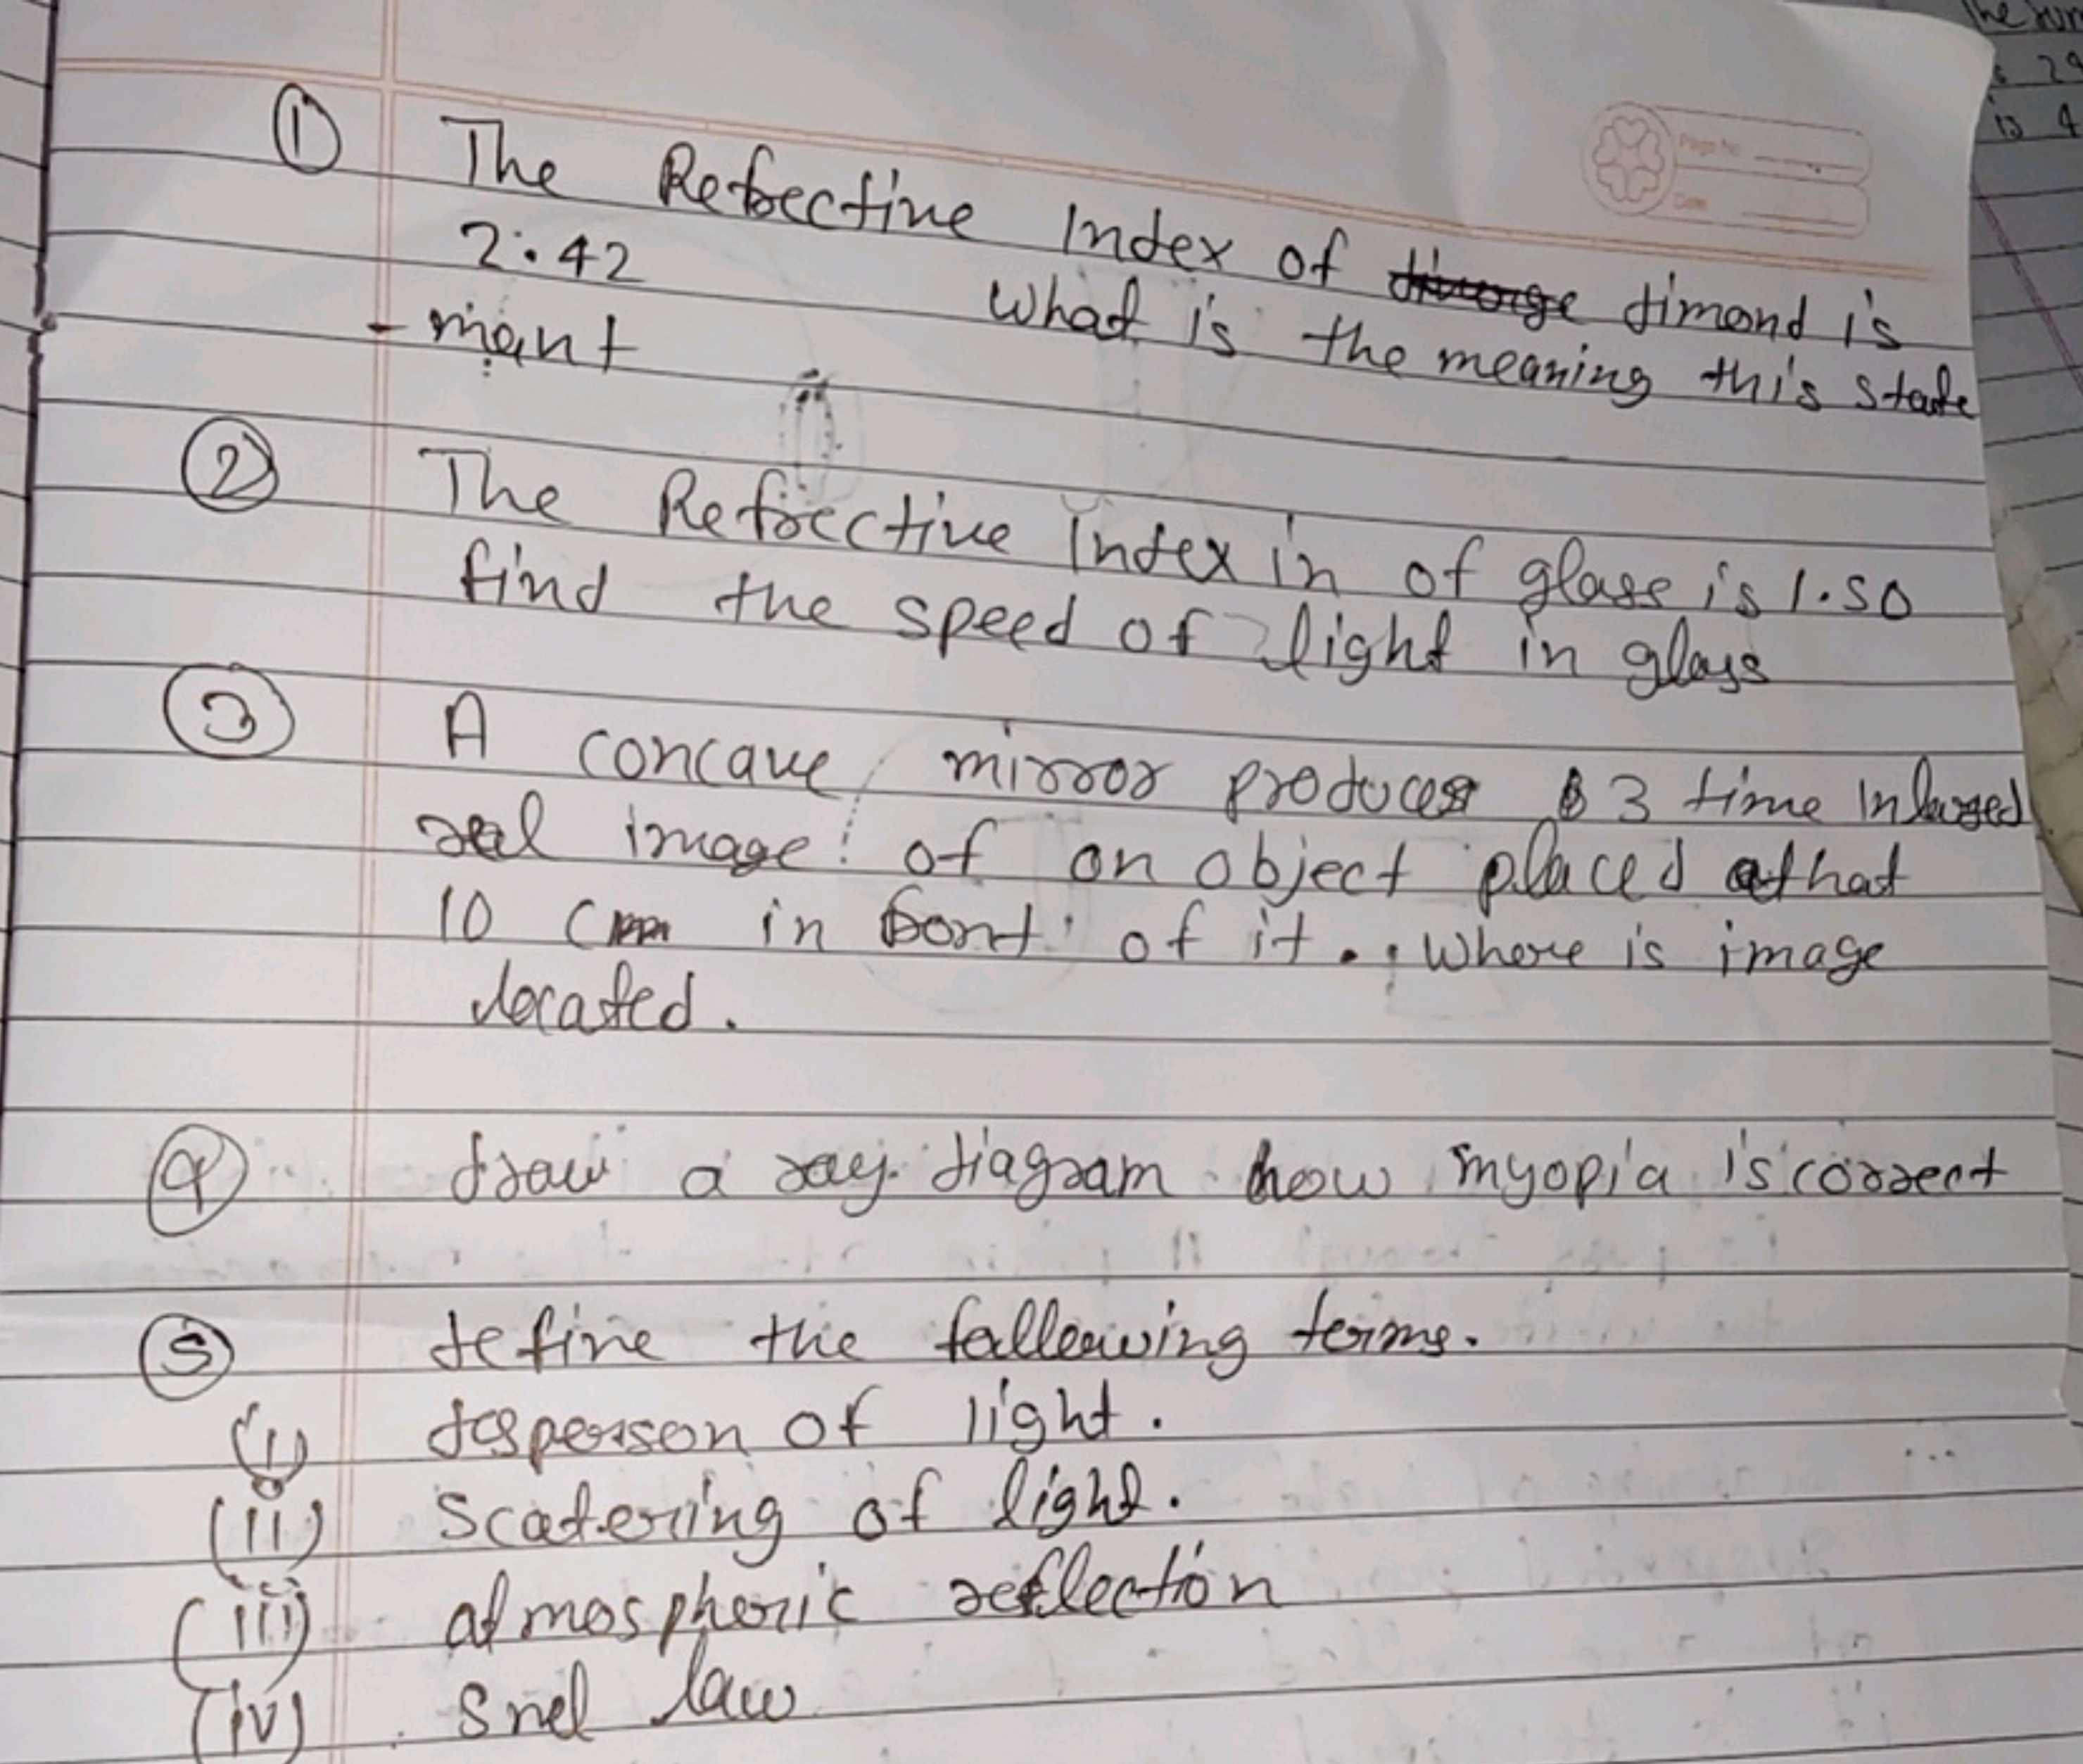 ① The Refrective Index of timond is
2.42 what is the meaning this state
- ment
② The Refrective Index in of glass is 1.50
find the speed of light in glass
③ A concave mirror produces 3 time Inlarged
real image of an object placed at hat
10 cm in front of it. Where is image
located.
④ draw a ray diagram how myopia is correct
⑤ define the fallowing terms.
(i) desperson of light.
(ii) Scatering of light.
(iii) atmospheric reflection
(iv) Snel law
Page No
Date
the hum
is 4